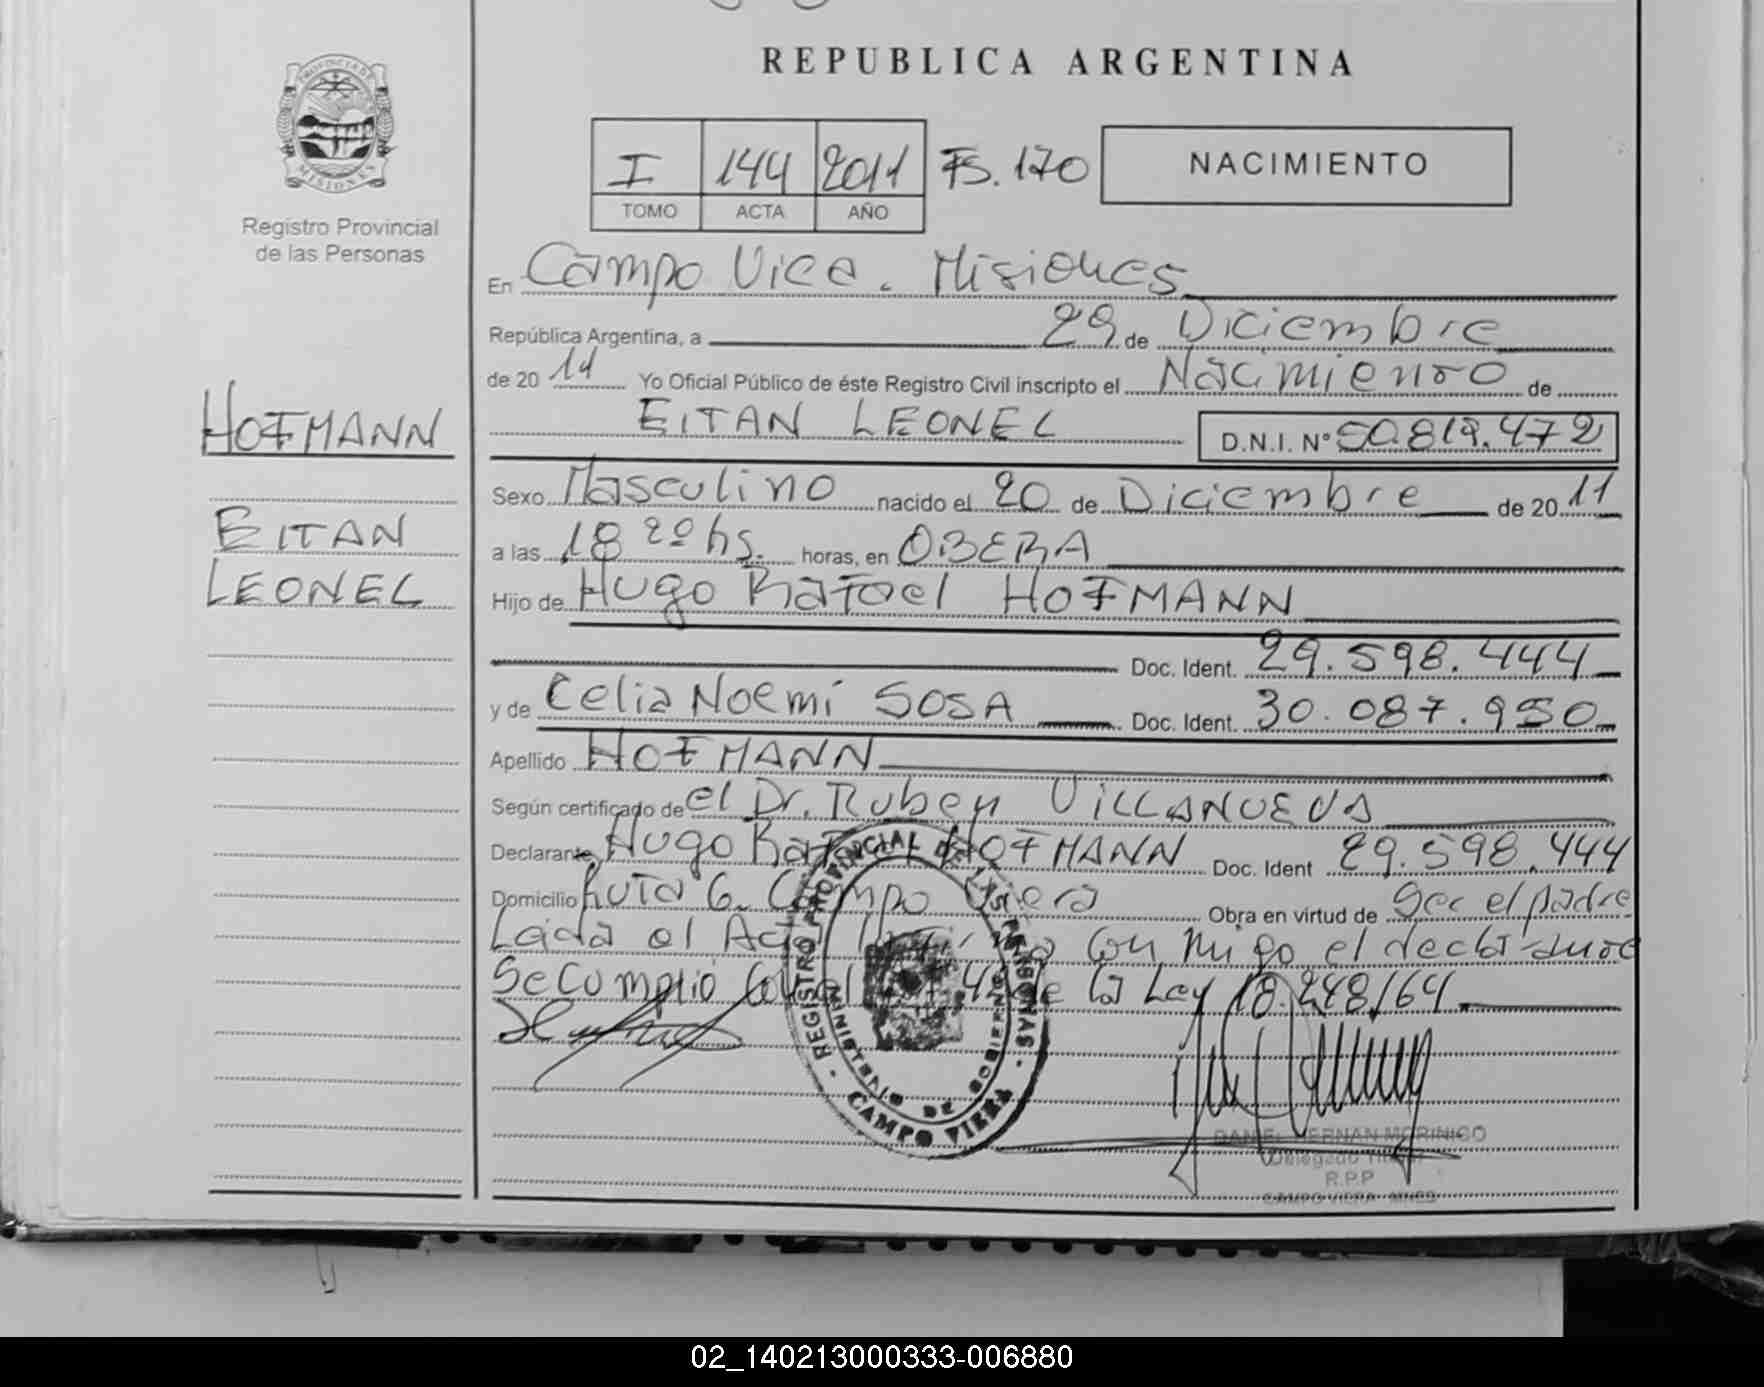 REPUBLICA ARGENTINA
PROVINCIA DE MISIONES
Registro Provincial
de las Personas
I 144 2011 FS. 170
TOMO ACTA AÑO
NACIMIENTO
En Campo Viera. Misiones
República Argentina, a 29 de Diciembre
de 20 11 Yo Oficial Público de éste Registro Civil inscripto el Nacimiento de
EITAN LEONEL D.N.I. Nº 50.819.472
HOFMANN
EITAN
LEONEL
Sexo Masculino nacido el 20 de Diciembre de 20 11
a las 18 20 hs. horas, en OBERA
Hijo de Hugo Rafael HOFMANN
Doc. Ident. 29.598.444
y de Celia Noemi SOSA Doc. Ident. 30.087.950
Apellido HOFMANN
Según certificado de el Dr. Ruben VILLANUEVA
Declarante Hugo Rafael HOFMANN Doc. Ident 29.598.444
Domicilio Ruta 6. Campo Viera Obra en virtud de Ser el padre
Leida el Acta con migo el declarante
Se Cumplió con el de la Ley 18.248/64
REGISTRO PROVINCIAL DE LAS PERSONAS
MINISTERIO DE GOBIERNO
CAMPO VIERA
DANIEL HERNAN MORINIGO
Delegado Titular
R.P.P
CAMPO VIERA MNES
02_140213000333-006880